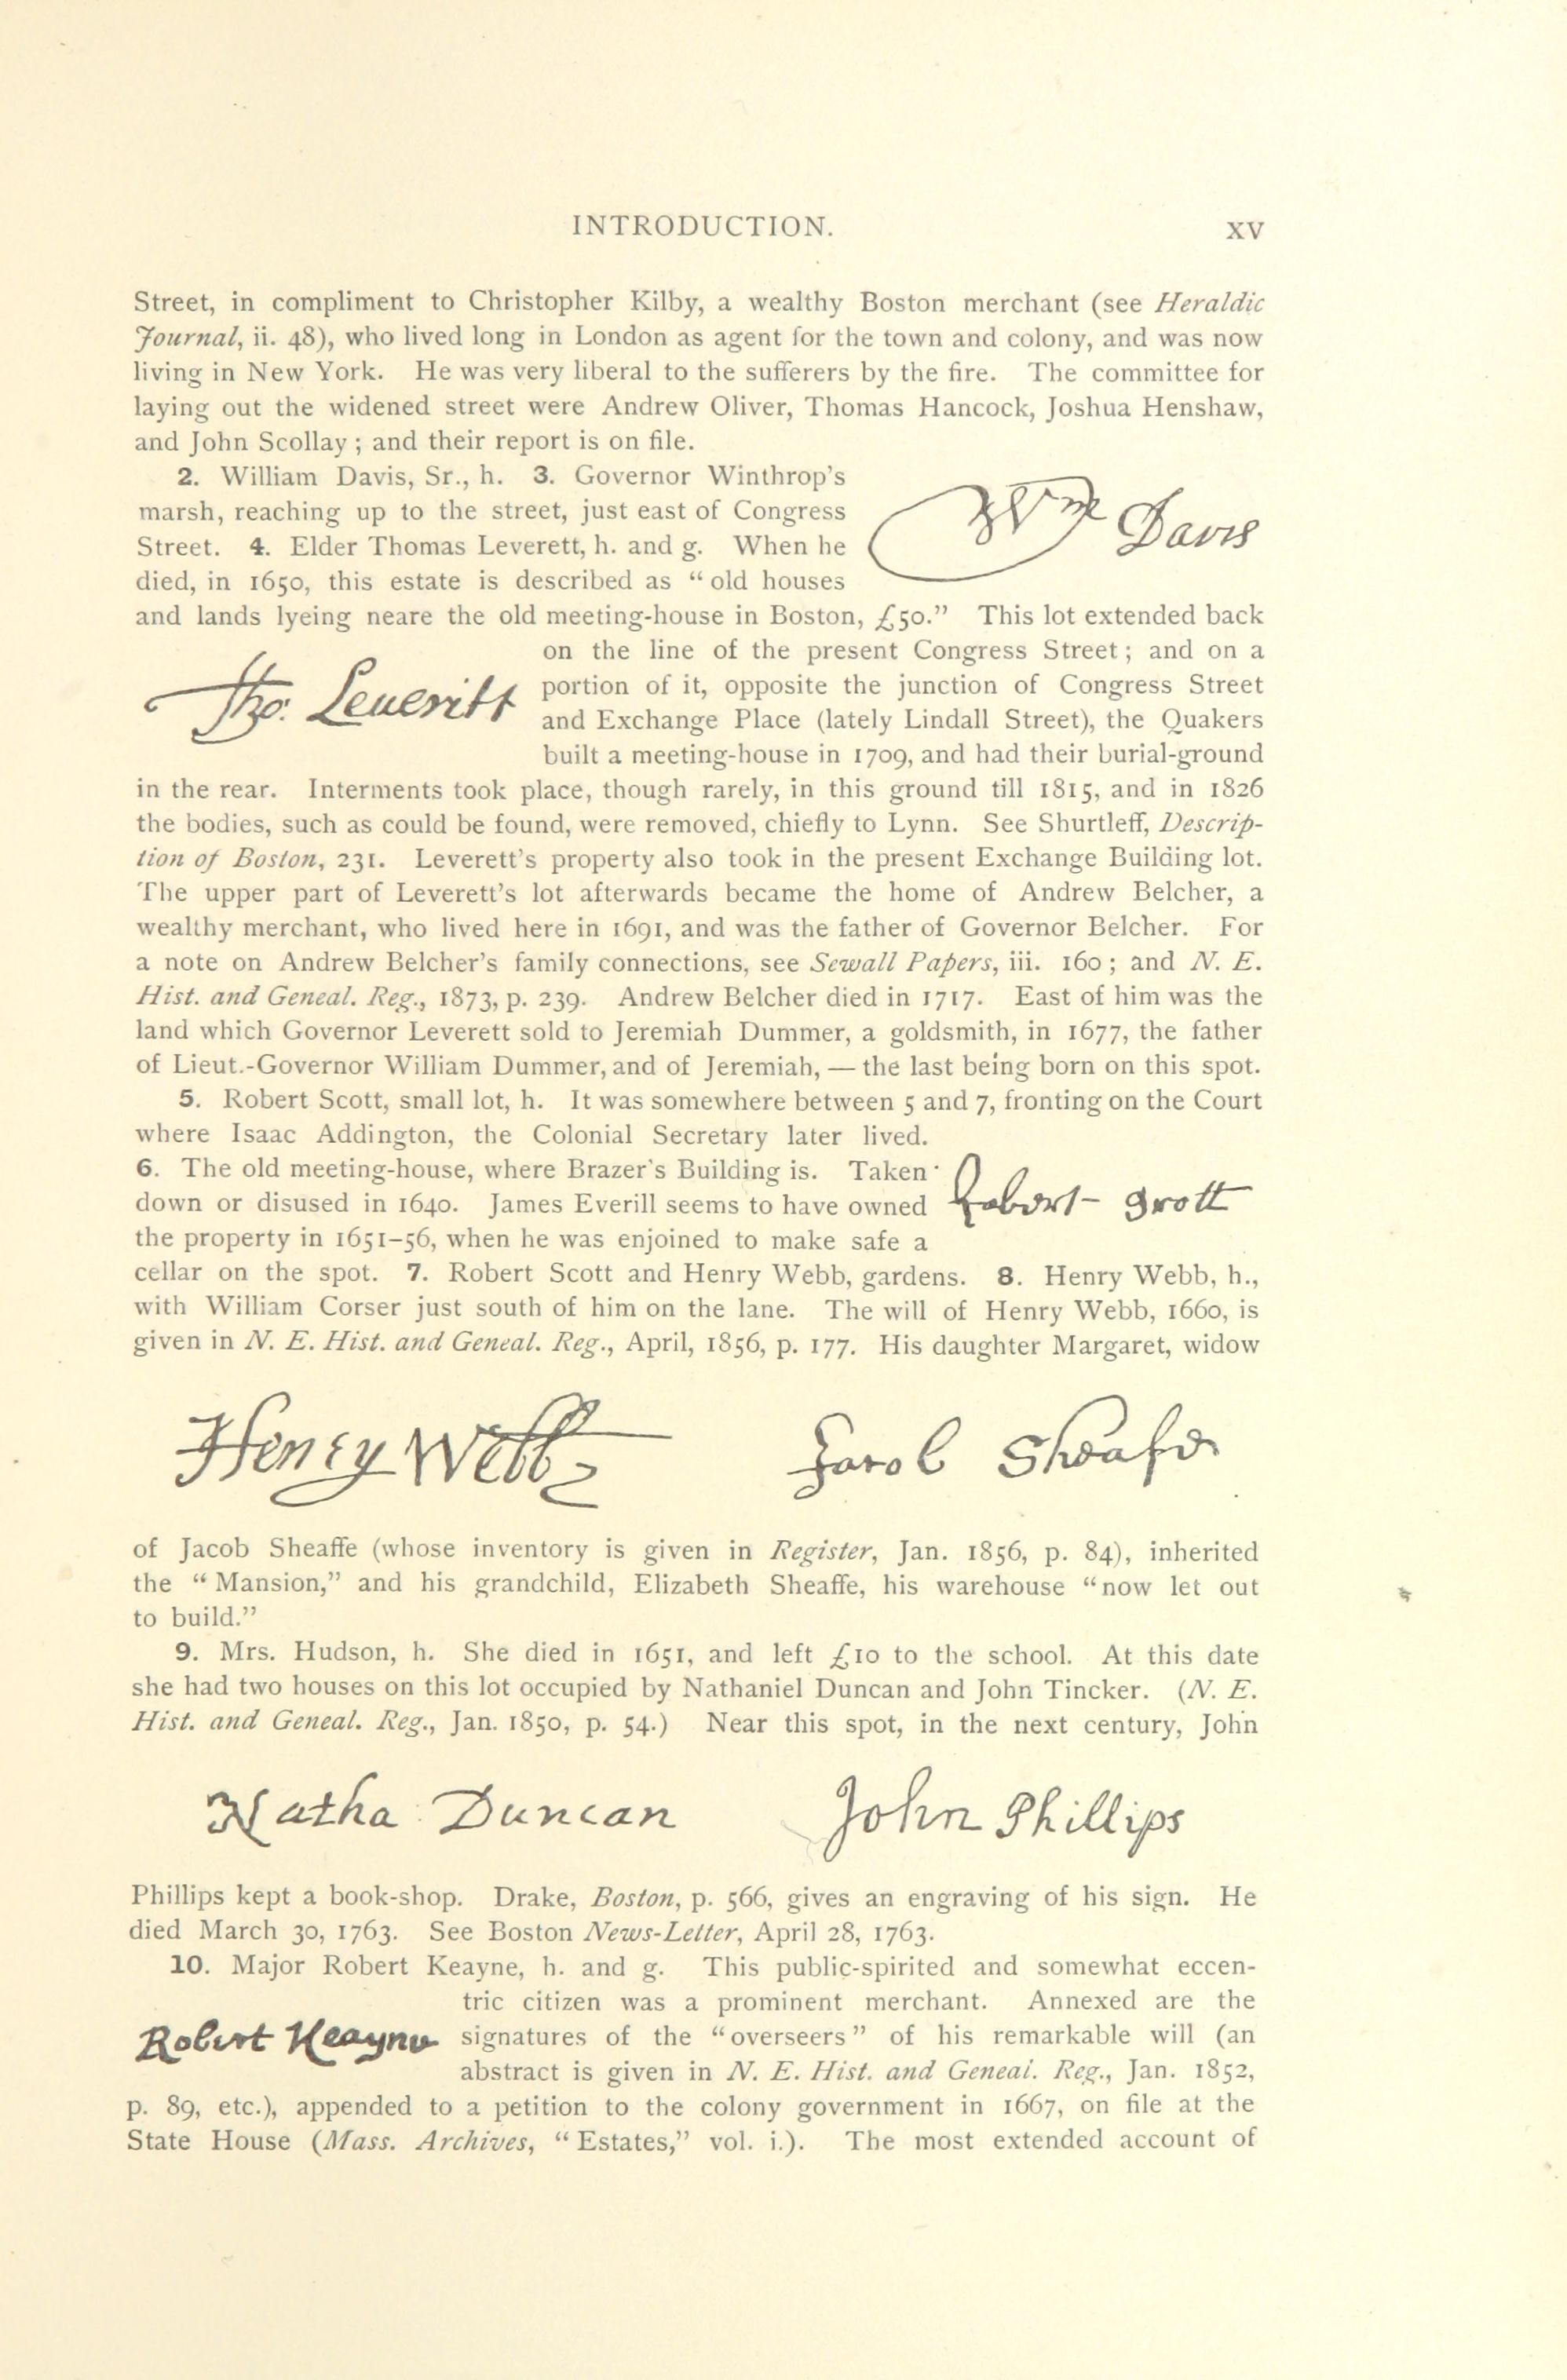 INTRODUCTION. XV
Street, in compliment to Christopher Kilby, a wealthy Boston merchant (see Heraldic
Journal, ii. 48), who lived long in London as agent for the town and colony, and was now
living in New York. He was very liberal to the sufferers by the fire. The committee for
laying out the widened street were Andrew Oliver, Thomas Hancock, Joshua Henshaw,
and John Scollay; and their report is on file.
2. William Davis, Sr., h. 3. Governor Winthrop's
marsh, reaching up to the street, just east of Congress
Street. 4. Elder Thomas Leverett, h. and g. When he
died, in 1650, this estate is described as "old houses
Wm Davis
and lands lyeing neare the old meeting-house in Boston, £50." This lot extended back
on the line of the present Congress Street; and on a
portion of it, opposite the junction of Congress Street
and Exchange Place (lately Lindall Street), the Quakers
built a meeting-house in 1709, and had their burial-ground
Tho: Leueritt
in the rear. Interments took place, though rarely, in this ground till 1815, and in 1826
the bodies, such as could be found, were removed, chiefly to Lynn. See Shurtleff, Descrip-
tion of Boston, 231. Leverett's property also took in the present Exchange Building lot.
The upper part of Leverett's lot afterwards became the home of Andrew Belcher, a
wealthy merchant, who lived here in 1691, and was the father of Governor Belcher. For
a note on Andrew Belcher's family connections, see Sewall Papers, iii. 160; and N. E.
Hist. and Geneal. Reg., 1873, p. 239. Andrew Belcher died in 1717. East of him was the
land which Governor Leverett sold to Jeremiah Dummer, a goldsmith, in 1677, the father
of Lieut.-Governor William Dummer, and of Jeremiah, — the last being born on this spot.
5. Robert Scott, small lot, h. It was somewhere between 5 and 7, fronting on the Court
where Isaac Addington, the Colonial Secretary later lived.
6. The old meeting-house, where Brazer's Building is. Taken
down or disused in 1640. James Everill seems to have owned
the property in 1651-56, when he was enjoined to make safe a
Robert Scott
cellar on the spot. 7. Robert Scott and Henry Webb, gardens. 8. Henry Webb, h.,
with William Corser just south of him on the lane. The will of Henry Webb, 1660, is
given in N. E. Hist. and Geneal. Reg., April, 1856, p. 177. His daughter Margaret, widow
Henry Webb Jacob Sheafe
of Jacob Sheaffe (whose inventory is given in Register, Jan. 1856, p. 84), inherited
the "Mansion," and his grandchild, Elizabeth Sheaffe, his warehouse "now let out
to build."
9. Mrs. Hudson, h. She died in 1651, and left £10 to the school. At this date
she had two houses on this lot occupied by Nathaniel Duncan and John Tincker. (N. E.
Hist. and Geneal. Reg., Jan. 1850, p. 54.) Near this spot, in the next century, John
Natha: Duncan John Phillips
Phillips kept a book-shop. Drake, Boston, p. 566, gives an engraving of his sign. He
died March 30, 1763. See Boston News-Letter, April 28, 1763.
10. Major Robert Keayne, h. and g. This public-spirited and somewhat eccen-
tric citizen was a prominent merchant. Annexed are the
Robert Keayne signatures of the "overseers" of his remarkable will (an
abstract is given in N. E. Hist. and Geneal. Reg., Jan. 1852,
p. 89, etc.), appended to a petition to the colony government in 1667, on file at the
State House (Mass. Archives, "Estates," vol. i.). The most extended account of